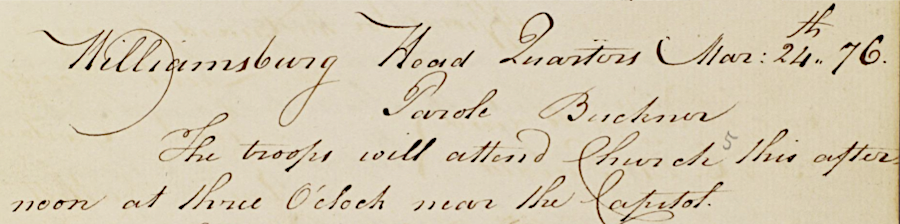 Williamsburg Head Quarters Mar: 24th 76.
Parole Buckner
The troops will attend Church this after-
noon at three O'clock near the Capitol.